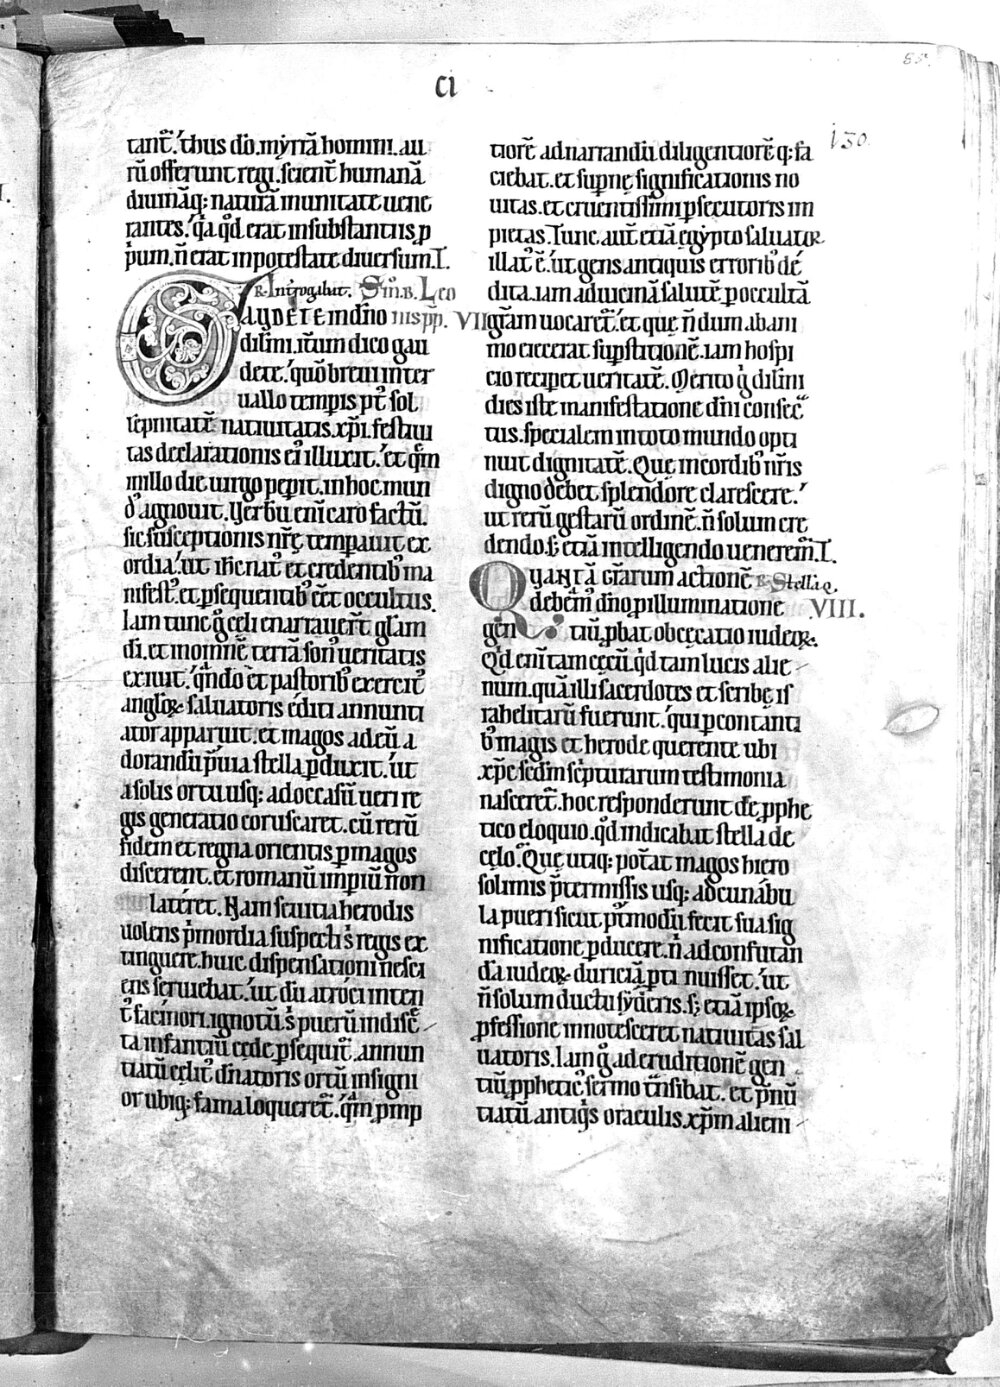 CI
85.
130
tant̄. thus dō. myrrā homini. au
rū offerunt regi. scient̄ humanā
diuināq; naturā in unitate uene
rantes. q̓a qd̓ erat in substantiis p̱
p̓um. n̄ erat in potestate diuersum. I.
R. Int̓rogabat. Sm̄.B. Leo
GAUDETE in dn̄o nis pp̄. VII
dilm̄i. it̄um dico gau
dete. quō breui inter
uallo tempis pt̓ sol
lēpnitatē natiuitatis. xp̄i. festiui
tas declarationis ei᾽ illuxit. et qm̄
in illo die uirgo pepit. in hoc mun
d᾽ agnouit. Verbū eni᾽ caro factū.
sic susceptionis nr̄ę temperauit ex
ordia. ut ihc̄ nat᾽ et credentib᾽ ma
nifest᾽. et p̱sequentib᾽ eēt occultus.
Iam tunc g᾽ celi enarrauer̄t glāam
di. et in omnē terrā son᾽ ueritatis
exiuit. qn̄do et pastorib᾽ exercit᾽
anglo⁊ saluatoris editi annunti
ator apparuit. et magos ad eū a
dorandū p̓uia stella p̱duxit. ut
a solis ortu usq; ad occasū ueri re
gis generatio coruscaret. cū rerū
fidem et regna orientis p̱ magos
discerent. et romanū imp̱iū non
lateret. Nam seuitia herodis
uolens p̓mordia suspecti s᾽ regis ex
tinguere. huic dispensationi nesci
ens seruiebat. ut dū atroci inten
t᾽ facinori. ignotū s᾽ puerū indisc̄
ta infantiū cede p̱sequit̓. annun
tiatū celit᾽ dn̄atoris ortū insigni
or ubiq; fama loqueret̓. qm̄ p̱mp
tiorē ad narrandū diligentiorē q; fa
ciebat. et sup̱nę significationis no
uitas. et cruentissimi p̱secutoris im
pietas. Tunc aut̓ etiā ęgypto saluator
illat᾽ ē. ut gens antiquis errorib᾽ de
dita. iam ad uicinā salutē p̱ occultā
gr̄am uocaret̓. et que n̄ dum ab ani
mo eiecerat sup̱stitionē. iam hospi
cio recip̱et ueritatē. Merito g᾽ dilm̄i
dies iste manifestatione dn̄i consec᾽
tus. specialem in toto mundo opti
nuit dignitatē. Que in cordib᾽ nr̄is
digno debet splendore clarescere.
ut rerū gestarū ordinē. n̄ solum cre
dendo. s; etiā intelligendo uenerem̄. I.
QUANTA gr̄arum actionē R. Stella q.
debem᾽ dn̄o p̱ illuminatione VIII.
gentiū. p̱bat obcecatio iudeo⁊.
Qd̓ enī tam cecū. qd̓ tam lucis alie
num. quā illi sacerdotes et scribe is
rahelitarū fuerunt. qui p̱contanti
b᾽ magis et herode querente ubi
xp̄c scdm̄ sc̓pturarum testimonia
nasceret̓. hoc responderunt de p̱phe
tico eloquio. qd̓ indicabat stella de
celo. Que utiq; potāt magos hiero
solimis p̓termissis usq; ad cunabu
la pueri sicut p̓tmodū fecit sua sig
nificatione p̱ducere. n̄ ad confutan
dā iudeo⁊ duriciā p̱tinuisset. ut
n̄ solum ductu syderis. s; etiā ipso⁊
p̱fessione innotesceret natiuitas sal
uatoris. Iam g᾽ ad eruditionē gen
tiū. p̱pheticᵒ sermo t̓nsibat. et p̓nū
tiatū antiq᾽s oraculis. xp̄m alieni